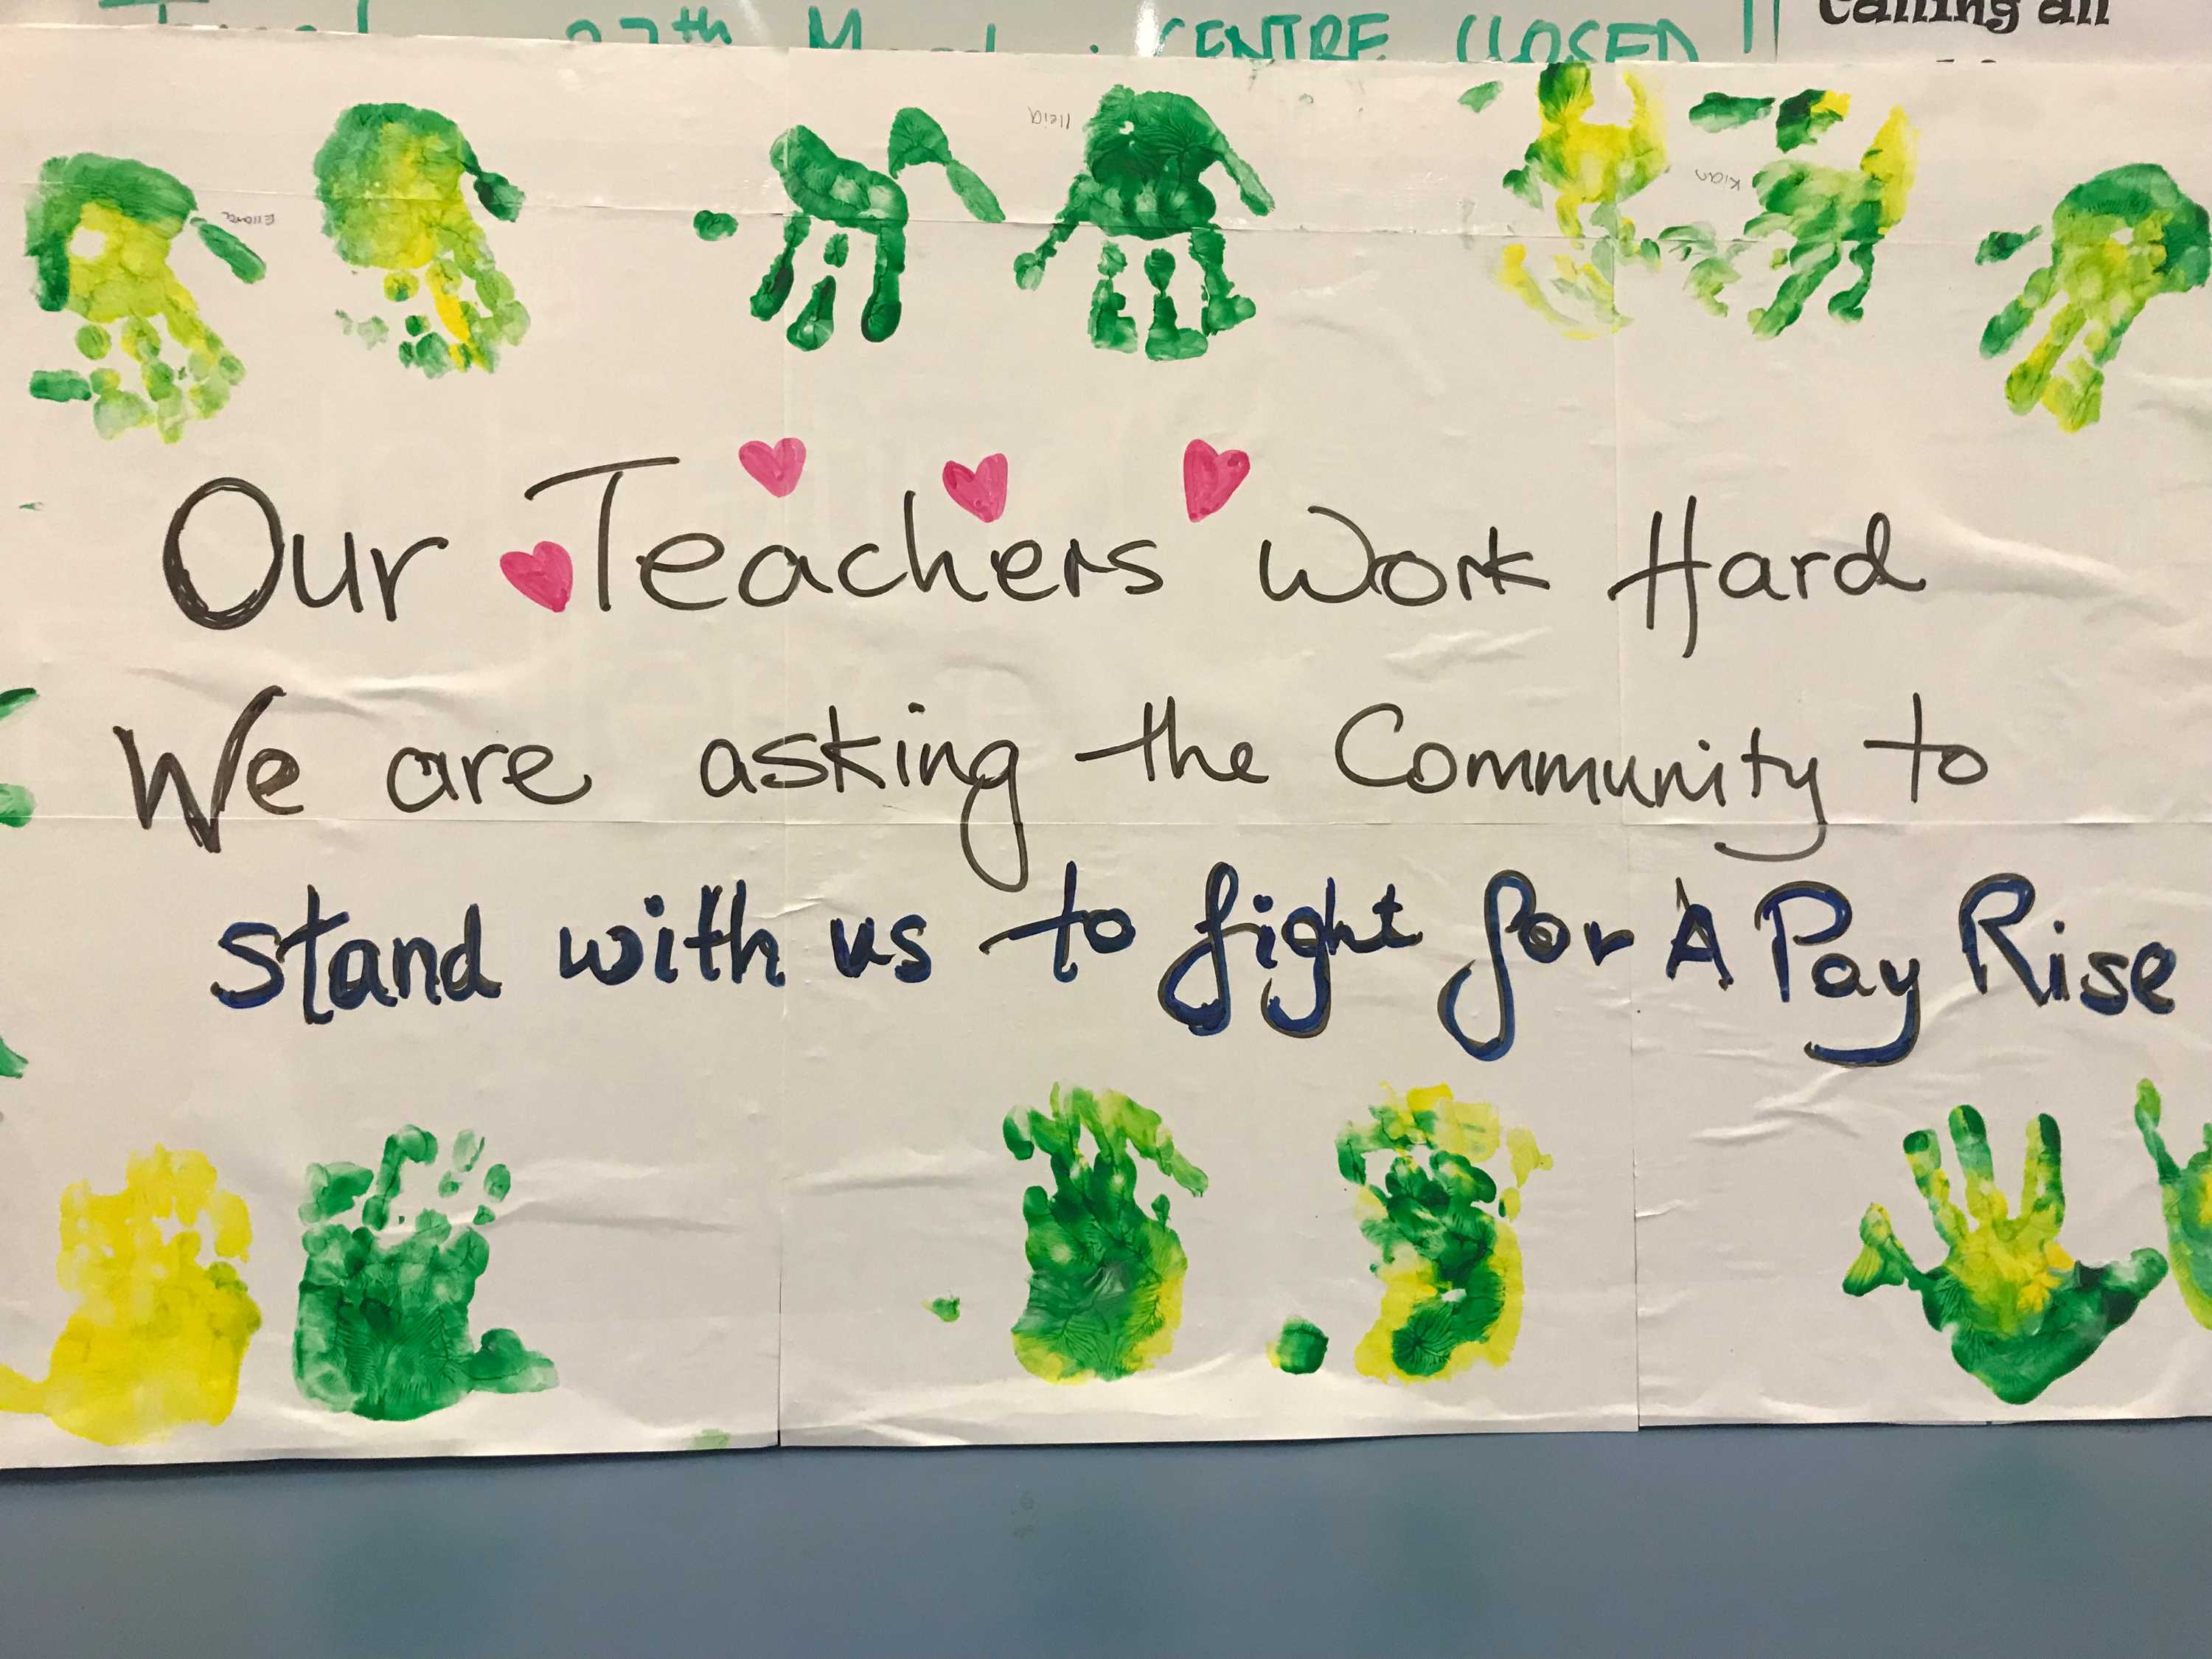 27th CENTRE CLOSED
Calling all
Kian
Our Teachers Work Hard
We are asking the Community to
stand with us to fight for A Pay Rise